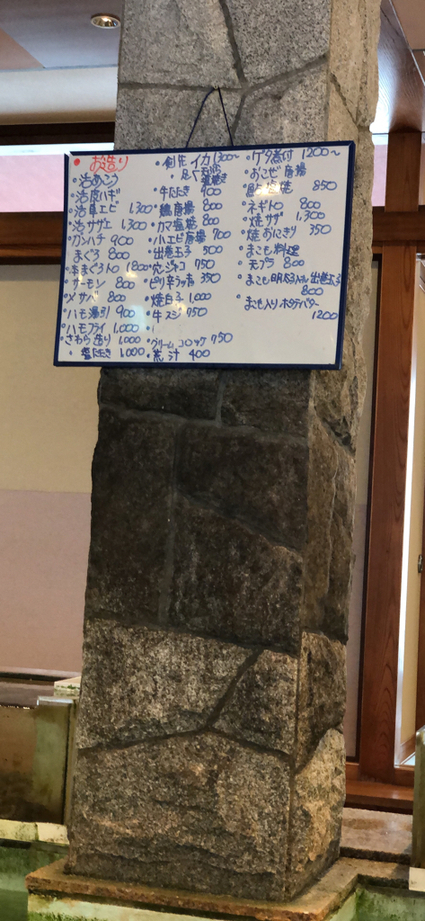 お造り
・活めごち
・活皮ハギ
・活車エビ 1,300
・活サザエ 1,300
・カンハチ 900
まぐろ 800
・本まぐろトロ 1800
・サーモン 800
・〆サバ 800
・ハモ湯引 900
・ハモフライ 1,000
・さわら造り 1,000
・塩たたき 1,000
・創作イカ 1300〜
・牛たたき 900
・鶏唐揚 800
・カマ塩焼 800
・小エビ唐揚 700
・出巻玉子 500
・穴ジャコ 750
・ピリ辛うっ吉 350
・焼白子 1,000
・牛スジ 750
・クリームコロッケ 750
・荒汁 400
・ゲタ煮付 1200〜
・おこぜ唐揚
塩焼 850
・ネギトロ 800
・焼サザ 1,300
・焼おにぎり 350
・まこも料理
・天プラ 800
・まこも明太子入り出巻玉子
800
・まこも入りホタテバター
1200